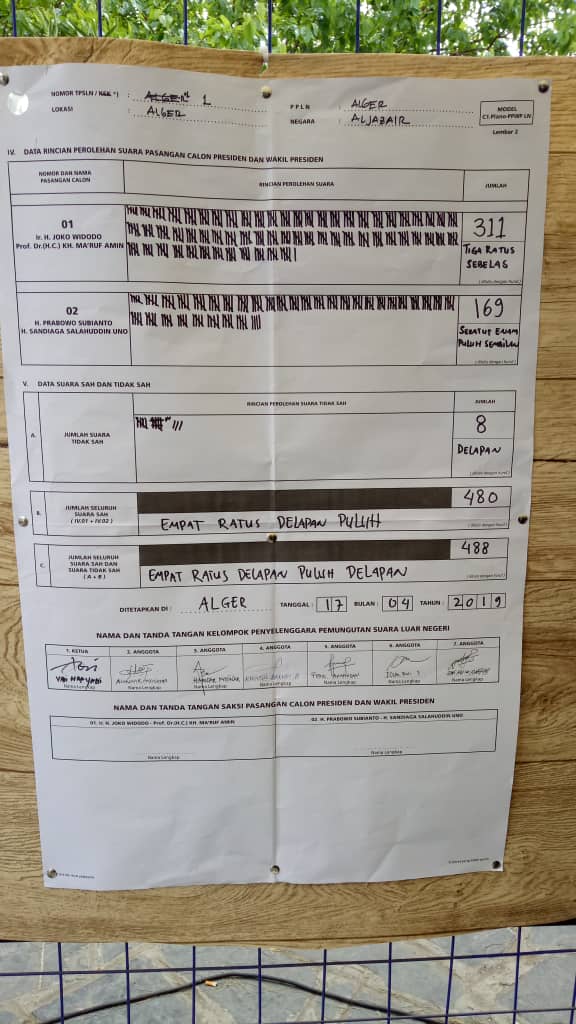 NOMOR TPSLN / KSK *) : ALGER 1 1
LOKASI : ALGER
PPLN : ALGER
NEGARA : ALJAZAIR
MODEL
C1.Plano-PPWP LN
Lembar 2
IV. DATA RINCIAN PEROLEHAN SUARA PASANGAN CALON PRESIDEN DAN WAKIL PRESIDEN
NOMOR DAN NAMA
PASANGAN CALON
RINCIAN PEROLEHAN SUARA
JUMLAH
01
Ir. H. JOKO WIDODO
Prof. Dr.(H.C.) KH. MA'RUF AMIN
311
TIGA RATUS
SEBELAS
(ditulis dengan huruf)
02
H. PRABOWO SUBIANTO
H. SANDIAGA SALAHUDDIN UNO
169
SERATUS ENAM
PULUH SEMBILAN
(ditulis dengan huruf)
V. DATA SUARA SAH DAN TIDAK SAH
RINCIAN PEROLEHAN SUARA TIDAK SAH
JUMLAH
A.
JUMLAH SUARA
TIDAK SAH
8
DELAPAN
(ditulis dengan huruf)
B.
JUMLAH SELURUH
SUARA SAH
( IV.01 + IV.02 )
480
EMPAT RATUS DELAPAN PULUH
(ditulis dengan huruf)
C.
JUMLAH SELURUH
SUARA SAH DAN
SUARA TIDAK SAH
( A + B )
488
EMPAT RATUS DELAPAN PULUH DELAPAN
(ditulis dengan huruf)
DITETAPKAN DI : ALGER TANGGAL : 17 BULAN : 04 TAHUN : 2019
NAMA DAN TANDA TANGAN KELOMPOK PENYELENGGARA PEMUNGUTAN SUARA LUAR NEGERI
1. KETUA 2. ANGGOTA 3. ANGGOTA 4. ANGGOTA 5. ANGGOTA 6. ANGGOTA 7. ANGGOTA
Nama Lengkap Nama Lengkap Nama Lengkap Nama Lengkap Nama Lengkap Nama Lengkap Nama Lengkap
NAMA DAN TANDA TANGAN SAKSI PASANGAN CALON PRESIDEN DAN WAKIL PRESIDEN
01. Ir. H. JOKO WIDODO - Prof. Dr.(H.C.) KH. MA'RUF AMIN
02. H. PRABOWO SUBIANTO - H. SANDIAGA SALAHUDDIN UNO
Nama Lengkap
Nama Lengkap